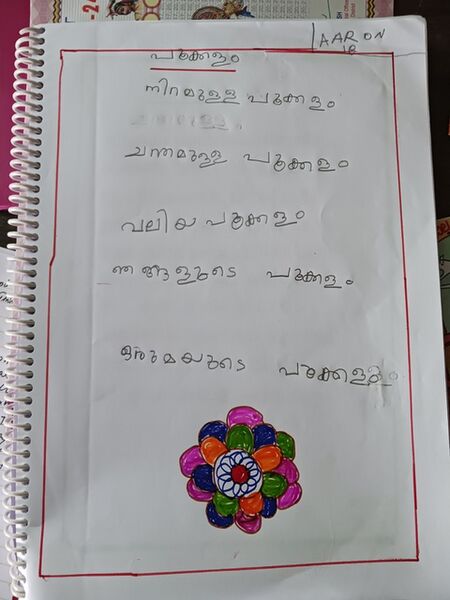 AARON
1B
പൂക്കളം
നിറമുള്ള പൂക്കളം
ചന്തമുള്ള പൂക്കളം
വലിയ പൂക്കളം
ഞങ്ങളുടെ പൂക്കളം
ഒരുമയുടെ പൂക്കളം